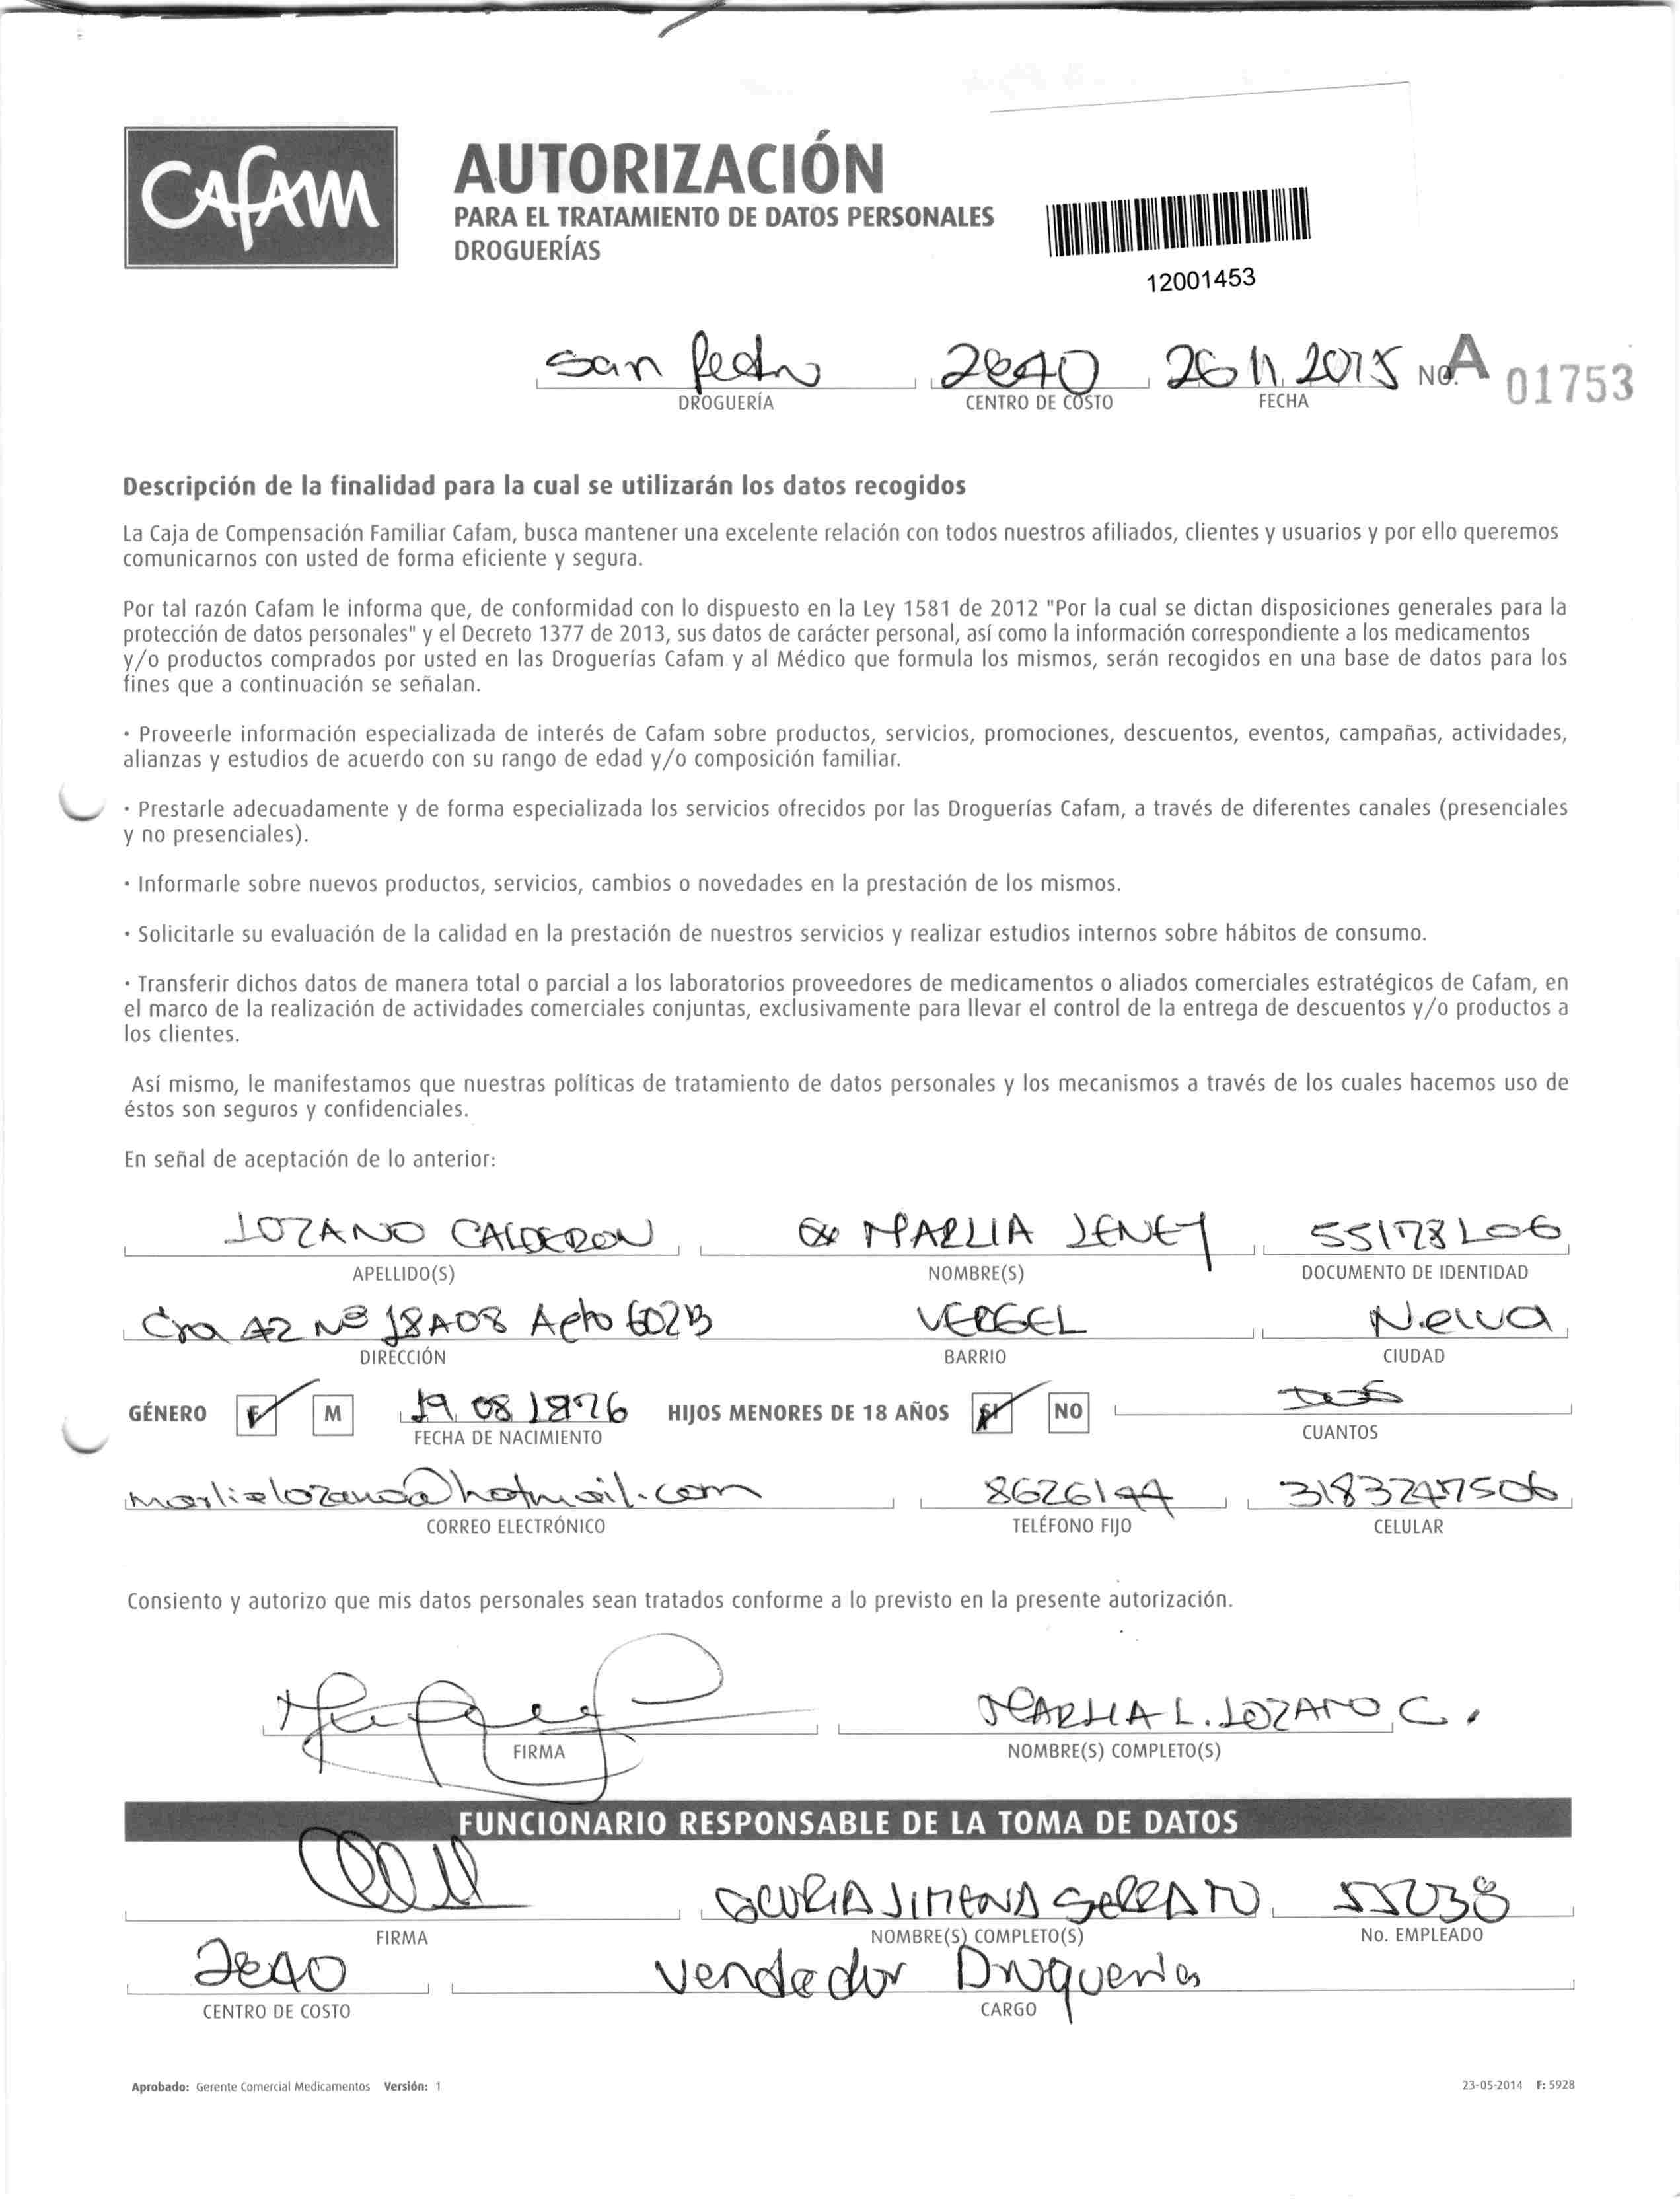 Cafam
AUTORIZACIÓN
PARA EL TRATAMIENTO DE DATOS PERSONALES
DROGUERÍAS
12001453
San Pedro 2840 26 11 2015 No. A 01753
DROGUERÍA CENTRO DE COSTO FECHA
Descripción de la finalidad para la cual se utilizarán los datos recogidos
La Caja de Compensación Familiar Cafam, busca mantener una excelente relación con todos nuestros afiliados, clientes y usuarios y por ello queremos
comunicarnos con usted de forma eficiente y segura.
Por tal razón Cafam le informa que, de conformidad con lo dispuesto en la Ley 1581 de 2012 "Por la cual se dictan disposiciones generales para la
protección de datos personales" y el Decreto 1377 de 2013, sus datos de carácter personal, así como la información correspondiente a los medicamentos
y/o productos comprados por usted en las Droguerías Cafam y al Médico que formula los mismos, serán recogidos en una base de datos para los
fines que a continuación se señalan.
· Proveerle información especializada de interés de Cafam sobre productos, servicios, promociones, descuentos, eventos, campañas, actividades,
alianzas y estudios de acuerdo con su rango de edad y/o composición familiar.
· Prestarle adecuadamente y de forma especializada los servicios ofrecidos por las Droguerías Cafam, a través de diferentes canales (presenciales
y no presenciales).
· Informarle sobre nuevos productos, servicios, cambios o novedades en la prestación de los mismos.
· Solicitarle su evaluación de la calidad en la prestación de nuestros servicios y realizar estudios internos sobre hábitos de consumo.
· Transferir dichos datos de manera total o parcial a los laboratorios proveedores de medicamentos o aliados comerciales estratégicos de Cafam, en
el marco de la realización de actividades comerciales conjuntas, exclusivamente para llevar el control de la entrega de descuentos y/o productos a
los clientes.
Así mismo, le manifestamos que nuestras políticas de tratamiento de datos personales y los mecanismos a través de los cuales hacemos uso de
éstos son seguros y confidenciales.
En señal de aceptación de lo anterior:
LOZANO CALDERON MARLIA LENEY
APELLIDO(S) NOMBRE(S) DOCUMENTO DE IDENTIDAD
Cra 42 Nº 18A08 Apto 602B VERGEL Neiva
DIRECCIÓN BARRIO CIUDAD
GÉNERO F M 19 08 1976 HIJOS MENORES DE 18 AÑOS SI NO DOS
FECHA DE NACIMIENTO CUANTOS
marlialozano@hotmail.com 8626144 3183247506
CORREO ELECTRÓNICO TELÉFONO FIJO CELULAR
Consiento y autorizo que mis datos personales sean tratados conforme a lo previsto en la presente autorización.
MARLIA L. LOZANO C.
FIRMA NOMBRE(S) COMPLETO(S)
FUNCIONARIO RESPONSABLE DE LA TOMA DE DATOS
JIMENA SERRATO 55038
FIRMA NOMBRE(S) COMPLETO(S) No. EMPLEADO
2840 Vendedor Droguerias
CENTRO DE COSTO CARGO
Aprobado: Gerente Comercial Medicamentos Versión: 1 23-05-2014 F: 5928